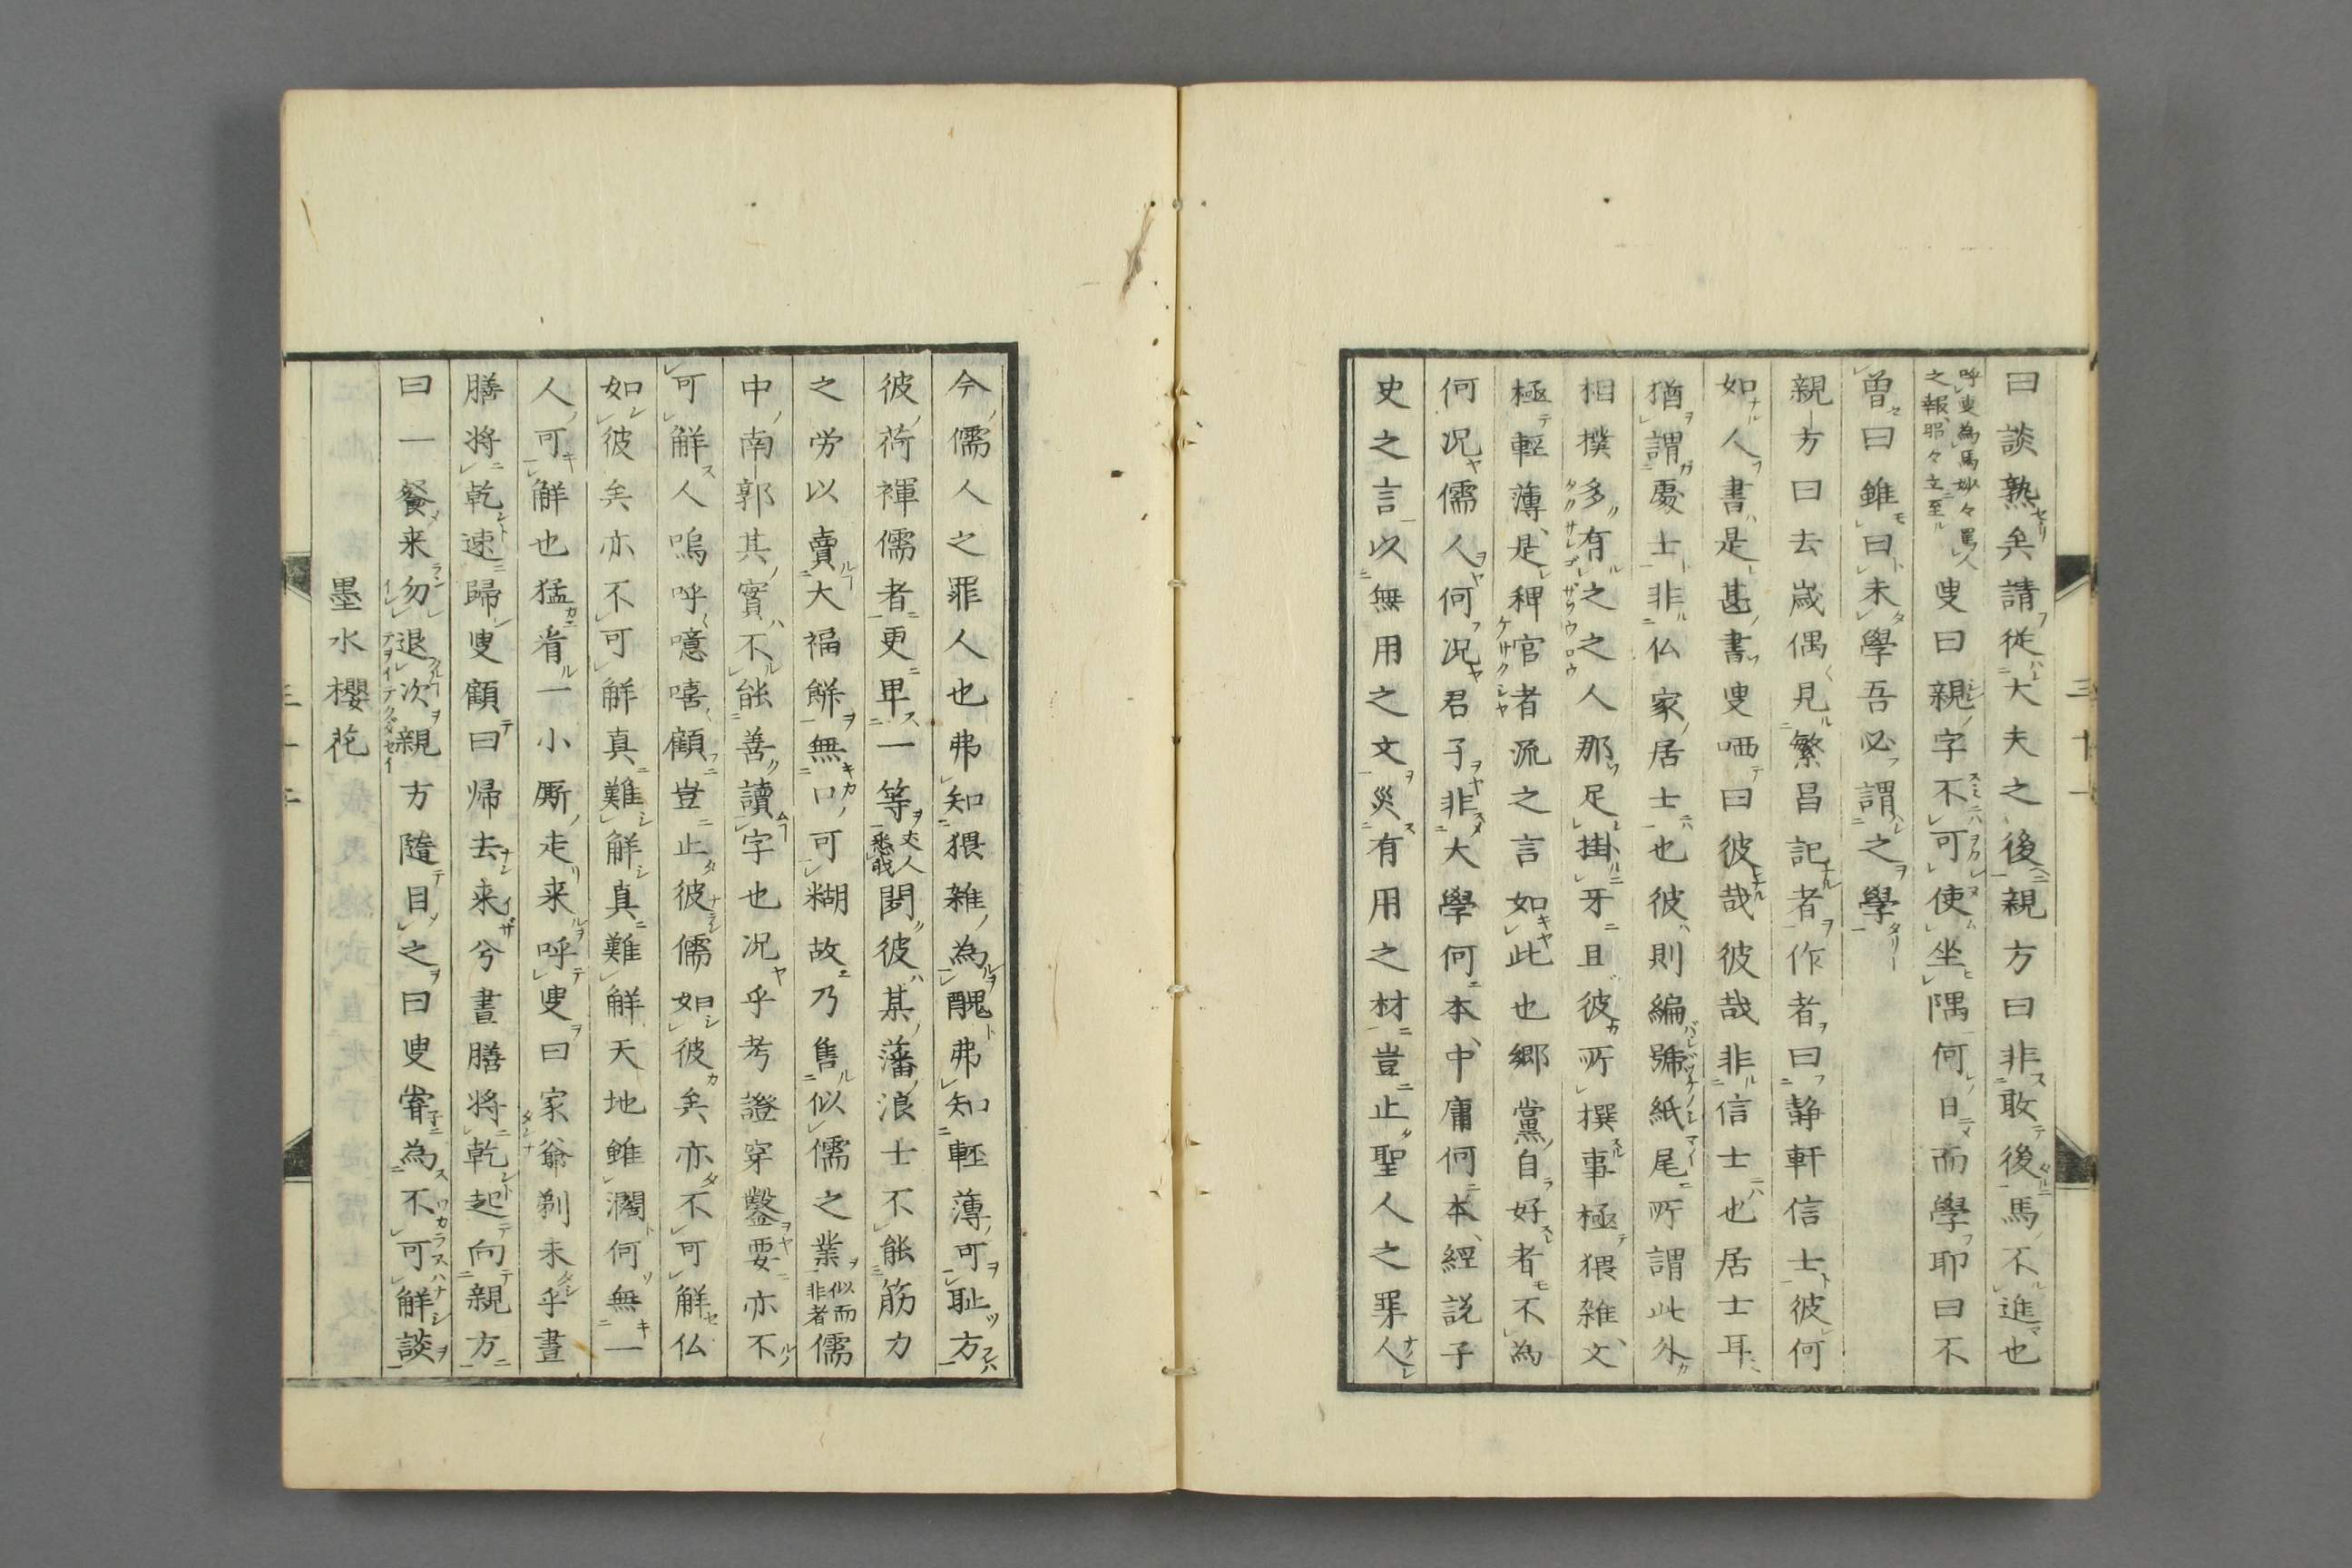 曰談熟矣請従大夫之後親方曰非敢後馬不進也
呼叟為馬妙々罵人
之報昭々立至
叟曰親字不可使坐隅何日而學耶曰不
曽曰雖曰未學吾必謂之學
親方曰去歳偶見繁昌記者作者曰静軒信士彼何
如人書是甚書叟哂曰彼哉彼哉非信士也居士耳
猶謂處士非仏家居士也彼則編號紙尾所謂此外
相撲多有之之人那足掛牙且彼所撰事極猥雑文
極輕薄是稗官者流之言如此也郷黨自好者不為
何況儒人何況君子非大學何本中庸何本經説子
史之言以無用之文災有用之材豈止聖人之罪人
三十一
今儒人之罪人也弗知猥雑為醜弗知輕薄可恥方
彼荷褌儒者更卑一等
夫人
閱彼某藩浪士不能筋力
之労以賣大福餅無口可糊故乃售似儒之業
似而
非者
儒
中南郭其實不能善讀字也況乎考證穿鑿要亦不
可解人嗚呼噫嘻顧豈止彼儒如彼矣亦不可解仏
如彼矣亦不可解真難解真難解天地雖濶何無一
人可解也猛看一小厮走来呼叟曰家爺剃未乎晝
膳将乾速歸叟顧曰帰去来兮晝膳将乾起向親方
曰一餐来勿退次親方随目之曰叟甯為不可解談
墨水櫻花